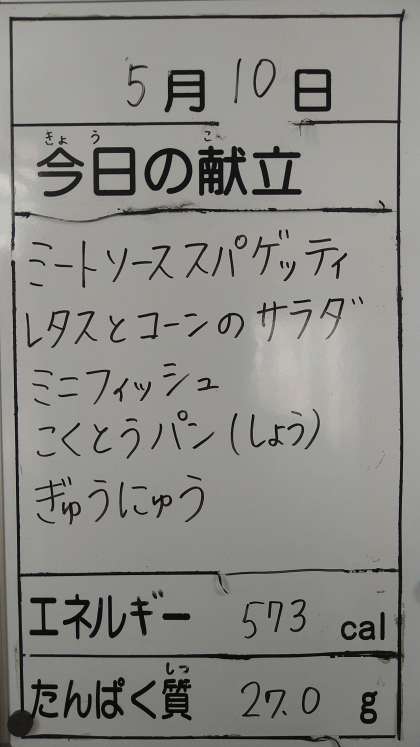 5月10日
きょう こ
今日の献立
ミートソーススパゲッティ
レタスとコーンのサラダ
ミニフィッシュ
こくとうパン(しょう)
ぎゅうにゅう
エネルギー 573 cal
しつ
たんぱく質 27.0 g